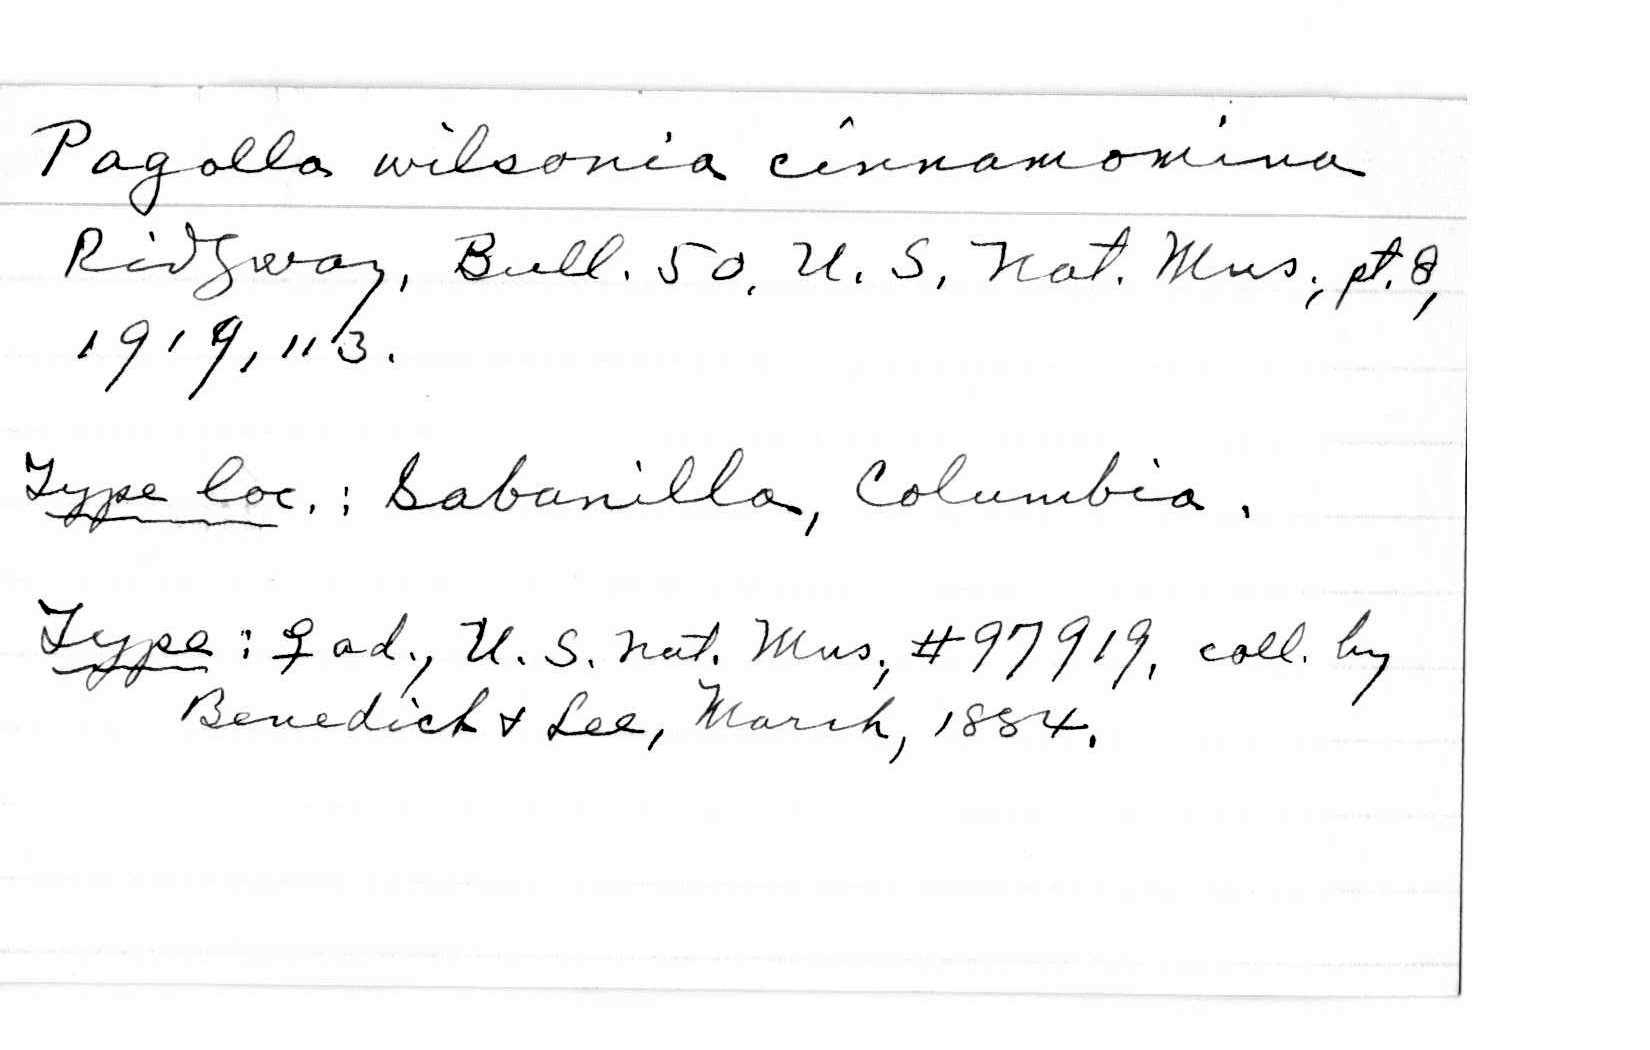 Pagolla wilsonia cinnamomina
Ridgway, Bull. 50, U. S. Nat. Mus., pt. 8,
1919, 113.
Type loc.: Sabanilla, Columbia.
Type: ♀ ad., U. S. Nat. Mus., #97919, coll. by
Benedick & Lee, March, 1884.